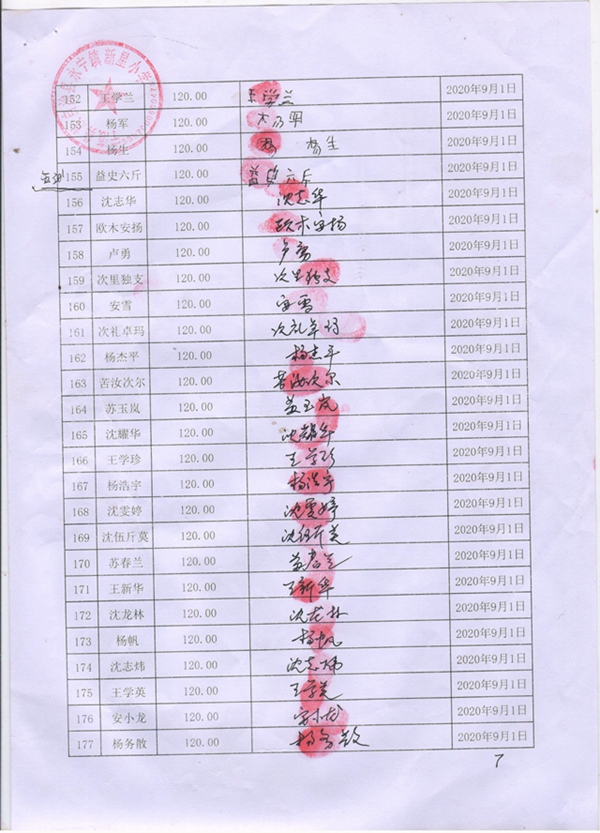 152 王学兰 120.00 王学兰 2020年9月1日
153 杨军 120.00 杨军 2020年9月1日
154 杨生 120.00 杨 杨生 2020年9月1日
155 益史六斤 120.00 益史六斤 2020年9月1日
156 沈志华 120.00 沈志华 2020年9月1日
157 欧木安扬 120.00 欧木安扬 2020年9月1日
158 卢勇 120.00 卢勇 2020年9月1日
159 次里独支 120.00 次里独支 2020年9月1日
160 安雪 120.00 安雪 2020年9月1日
161 次礼卓玛 120.00 次礼卓玛 2020年9月1日
162 杨杰平 120.00 杨杰平 2020年9月1日
163 苦汝次尔 120.00 苦汝次尔 2020年9月1日
164 苏玉岚 120.00 苏玉岚 2020年9月1日
165 沈耀华 120.00 沈耀华 2020年9月1日
166 王学珍 120.00 王学珍 2020年9月1日
167 杨浩宇 120.00 杨浩宇 2020年9月1日
168 沈雯婷 120.00 沈雯婷 2020年9月1日
169 沈伍斤莫 120.00 沈伍斤莫 2020年9月1日
170 苏春兰 120.00 苏春兰 2020年9月1日
171 王新华 120.00 王新华 2020年9月1日
172 沈龙林 120.00 沈龙林 2020年9月1日
173 杨帆 120.00 杨帆 2020年9月1日
174 沈志炜 120.00 沈志炜 2020年9月1日
175 王学英 120.00 王学英 2020年9月1日
176 安小龙 120.00 安小龙 2020年9月1日
177 杨务散 120.00 杨务散 2020年9月1日
7